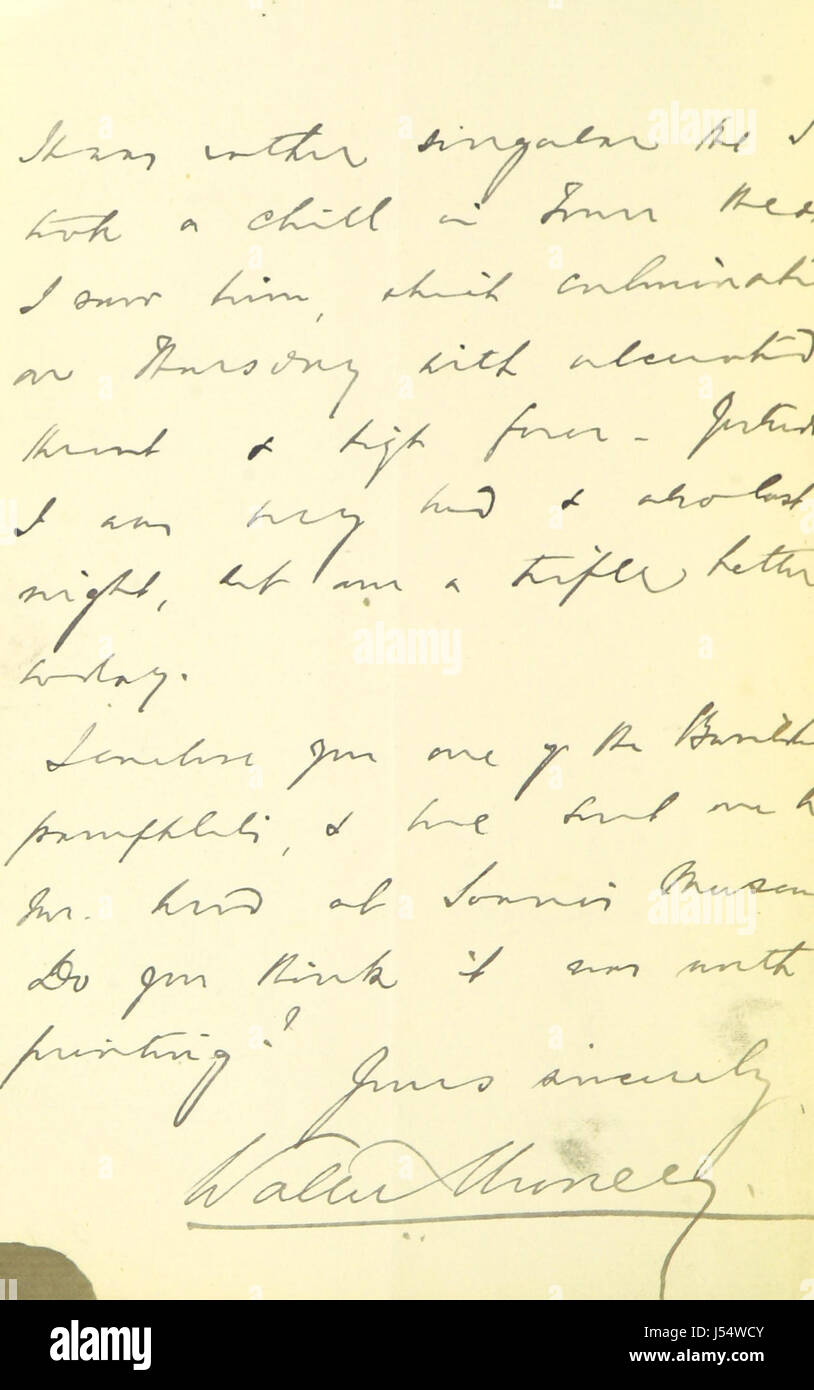 It was rather singular the I
took a chill in
I saw him, which culminati
on Thursday with ulcerated
throat & high fever -
I was very bad & also last
night, but am a trifle better
today.
I enclose you one of the
pamphlets, & have sent one
Mr. at Museu
Do you think it was worth
printing?
Yours sincerely,
Walter Money.
alamy
Image ID: J54WCY
www.alamy.com